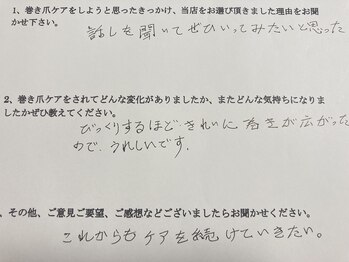 1、巻き爪ケアをしようと思ったきっかけ、当店をお選び頂きました理由をお聞
かせ下さい。
話しを聞いてぜひいってみたいと思った
2、巻き爪ケアをされてどんな変化がありましたか、またどんな気持ちになりま
したかぜひ教えてください。
びっくりするほど きれいに 巻きが広がった
ので、うれしいです。
、その他、ご意見ご要望、ご感想などございましたらお聞かせください。
これからも ケアを続けていきたい。